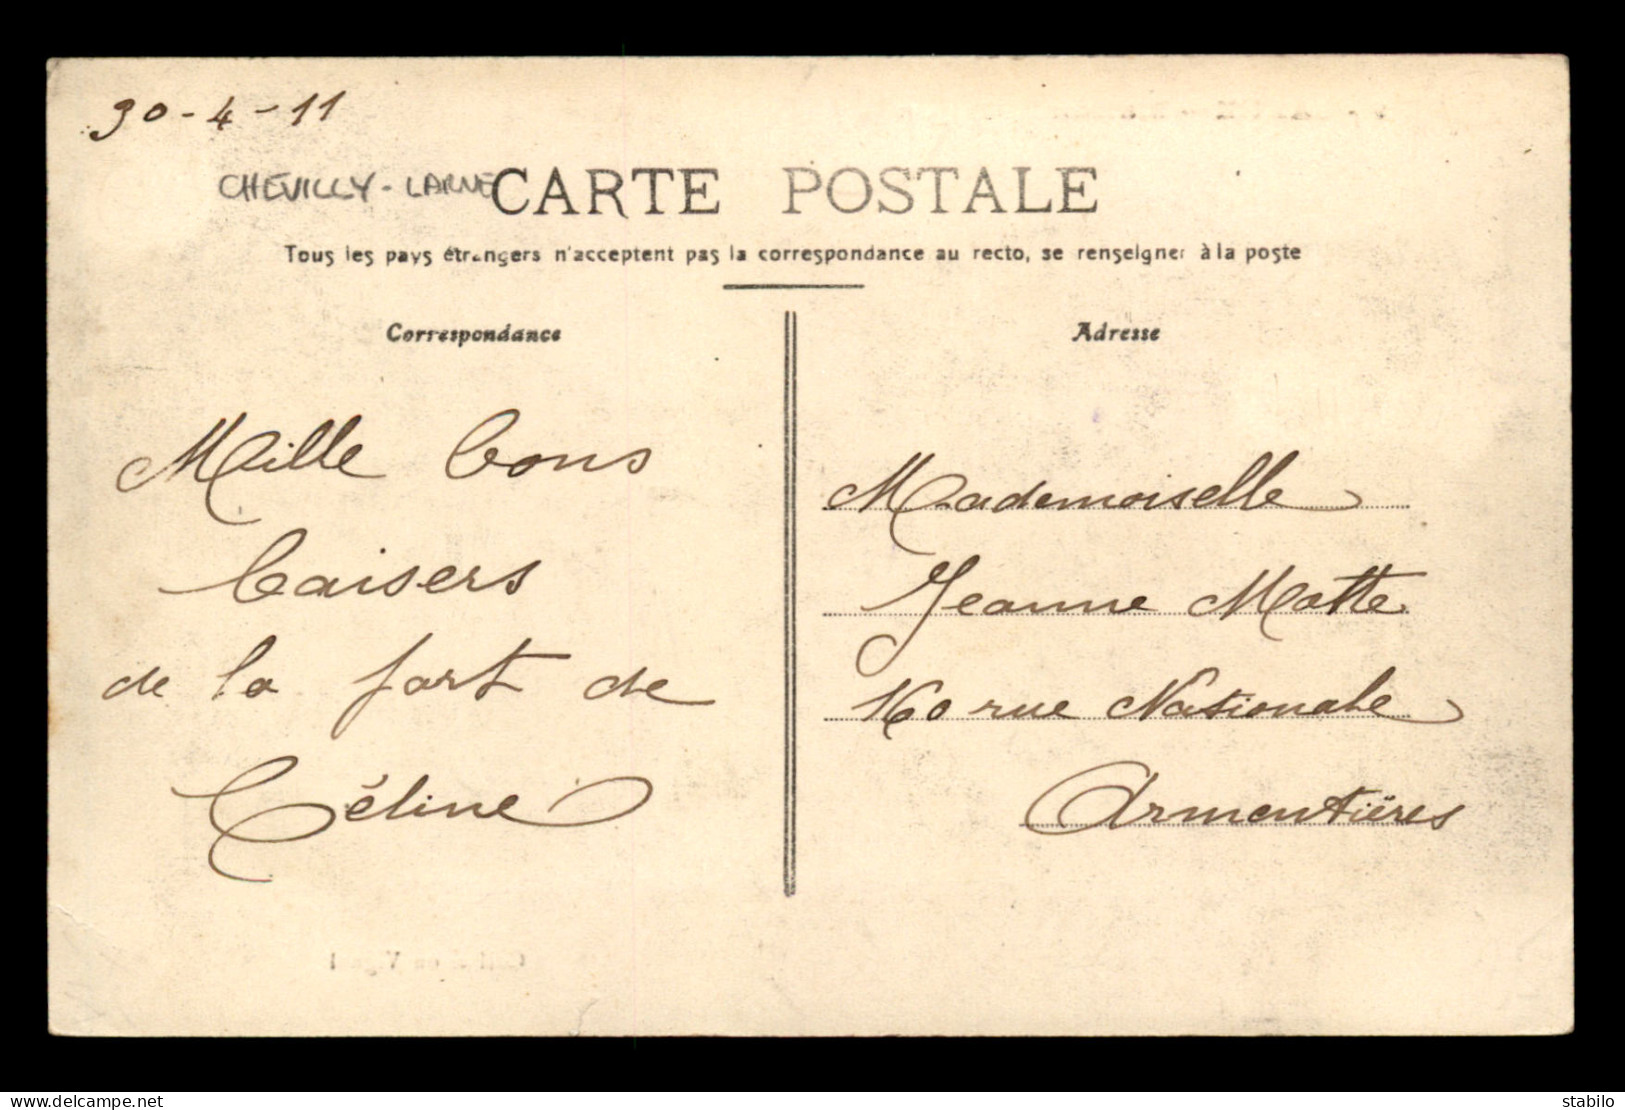 30-4-11
CHEVILLY-LARUE
CARTE POSTALE
Tous les pays étrangers n'acceptent pas la correspondance au recto, se renseigner à la poste
Correspondance
Mille bons
baisers
de la part de
Céline
Adresse
Mademoiselle
Jeanne Motte
160 rue Nationale
Armentières
delcampe.net
stabilo